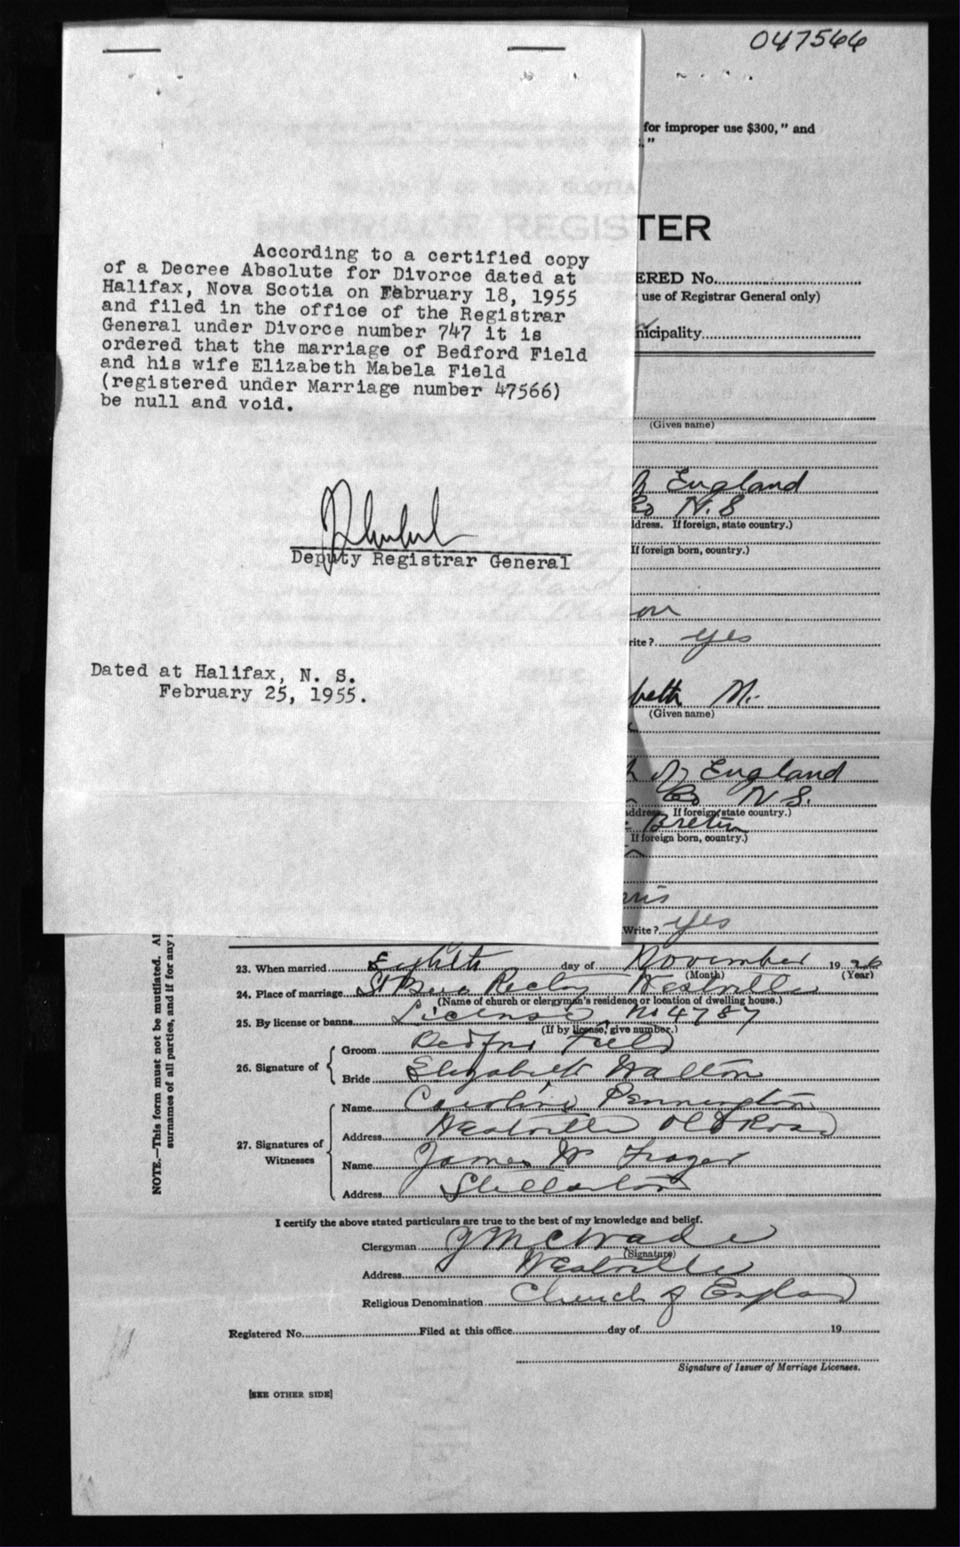 047566
for improper use $300," and
"
TER
ERED No.
use of Registrar General only)
nicipality
According to a certified copy
of a Decree Absolute for Divorce dated at
Halifax, Nova Scotia on February 18, 1955
and filed in the office of the Registrar
General under Divorce number 747 it is
ordered that the marriage of Bedford Field
and his wife Elizabeth Mabela Field
(registered under Marriage number 47566)
be null and void.
Deputy Registrar General
Dated at Halifax, N. S.
February 25, 1955.
(Given name)
England
Co N.S
ddress. If foreign, state country.)
If foreign born, country.)
on
rite? yes
beth M.
(Given name)
of England
Co N S.
address. If foreign state country.)
Breton
If foreign born, country.)
Write? yes
NOTE.—This form must not be mutilated. Al
surnames of all parties, and if for any
23. When married Eighth day of November 1926
(Month) (Year)
24. Place of marriage St Bees Rectory Westville
(Name of church or clergyman's residence or location of dwelling house.)
25. By license or banns License No 4787
(If by license, give number.)
26. Signature of
Groom Bedford Field
Bride Elizabeth Walton
27. Signatures of Witnesses
Name Caroline Pennington
Address Westville Old Road
Name James W Frazer
Address Stellarton
I certify the above stated particulars are true to the best of my knowledge and belief.
Clergyman J M C Wade
(Signature)
Address Westville
Religious Denomination Church of England
Registered No. Filed at this office day of 19
Signature of Issuer of Marriage Licenses.
[SEE OTHER SIDE]